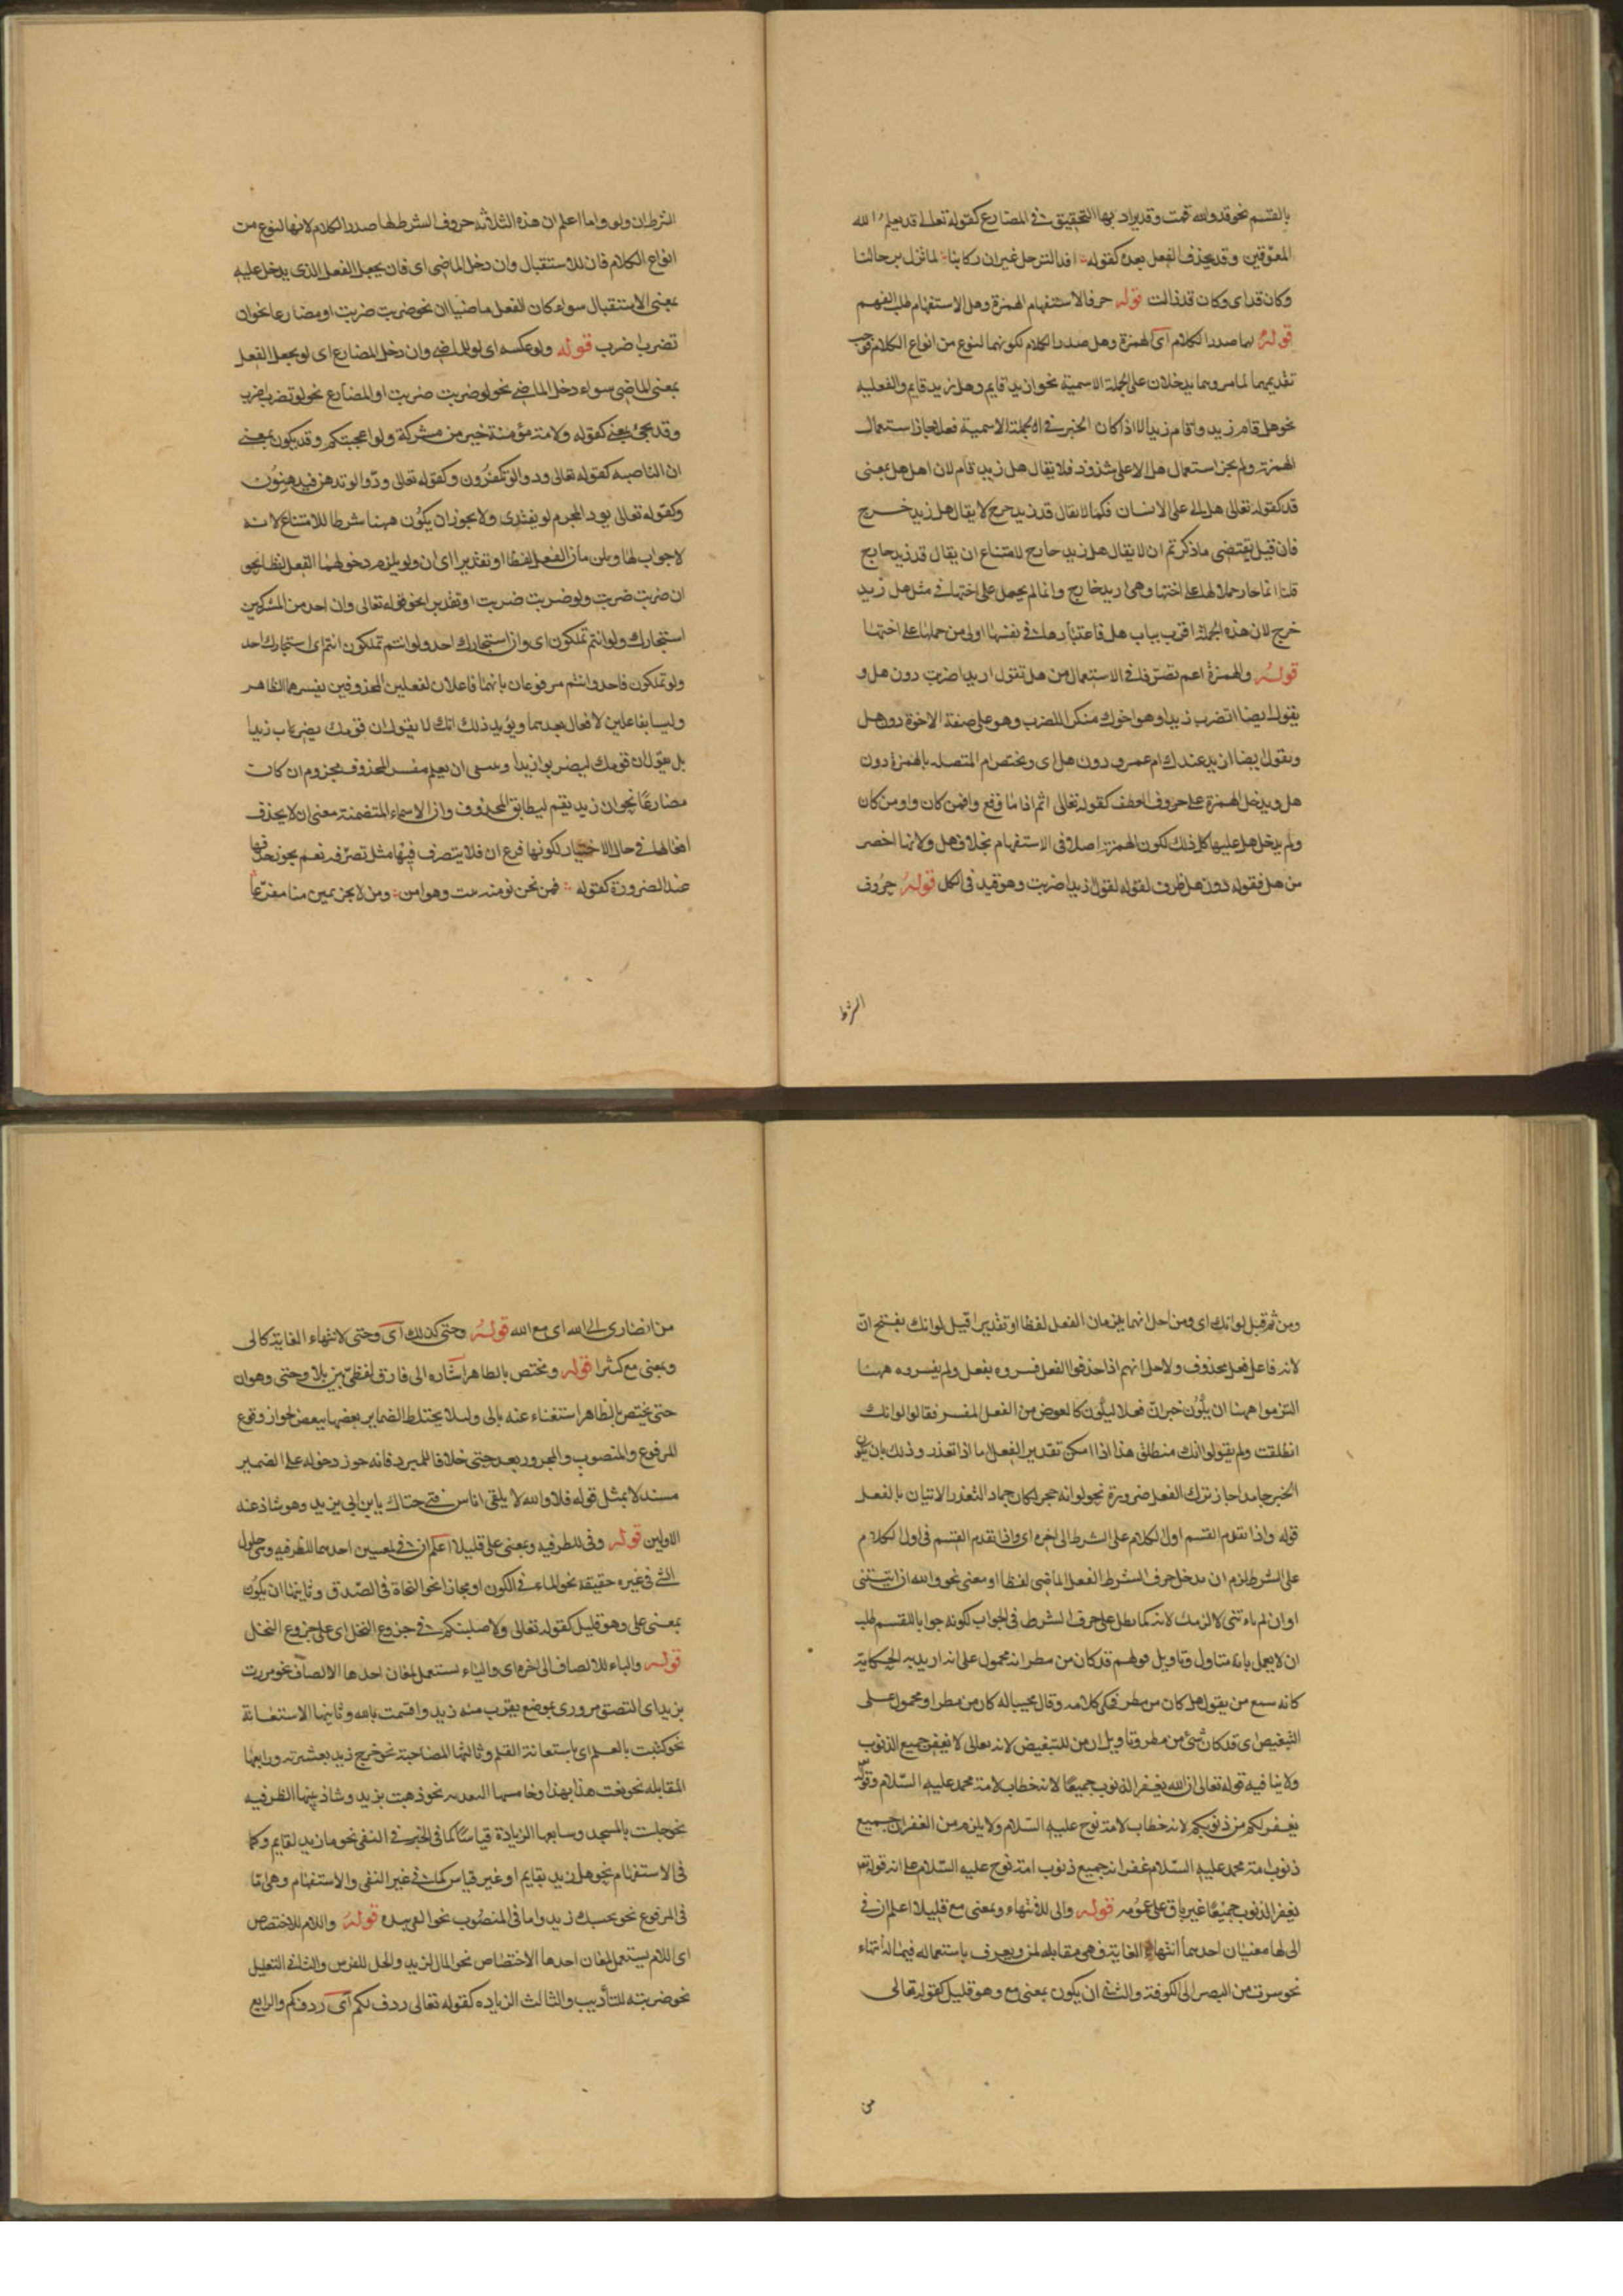 بالقسم نحو قد والله قمت وقد يراد بها التحقيق في المضارع كقوله تعالى قد يعلم الله
المعوقين وقد يحذف الفعل بعده كقوله افد الترحل غير ان ركابنا لما تزل برحالنا
وكان قد اى وكان قد زالت قوله حرفا الاستفهام الهمزة وهل الاستفهام طلب الفهم
قوله لهما صدر الكلام اى الهمزة وهل صدر الكلام لكونهما لنوع من انواع الكلام فوجب
تقديمهما لما مر وهما يدخلان على الجملة الاسمية نحو ازيد قايم وهل زيد قايم والفعلية
نحو هل قام زيد واقام زيد الا اذا كان الخبر في الجملة الاسمية فعلا جاز استعمال
الهمزة ولم يجز استعمال هل الا على شذوذ فلا يقال هل زيد قام لان اهل هل بمعنى
قد كقوله تعالى هل اتى على الانسان فكما لا يقال قد زيد خرج لا يقال هل زيد خرج
فان قيل يقتضى ما ذكرتم ان لا يقال هل زيد خارج لامتناع ان يقال قد زيد خارج
قلنا انما جاز حملا لها على اختها وهى ازيد خارج وانما لم يحمل على اختها في مثل هل زيد
خرج لان هذه الجملة اقرب بباب هل فاعتبار هل في نفسها اولى من حملها على اختها
قوله والهمزة اعم تصرفا في الاستعمال من هل تقول ازيدا ضربت دون هل و
يقول ايضا اتضرب زيدا وهو اخوك منكرا للضرب وهو على صفة الاخوة دون هل
وتقول ايضا ازيد عندك ام عمرو دون هل اى ويختص ام المتصلة بالهمزة دون
هل ويدخل الهمزة على حروف العطف كقوله تعالى اثم اذا ما وقع وافمن كان واومن كان
ولم يدخل هل عليها كل ذلك لكون الهمزة اصلا في الاستفهام بخلاف هل ولانها اخصر
من هل فقوله دون هل ظرف لقوله تقول زيدا ضربت وهو قيد في الكل قوله حروف
الشرط
الشرط ان ولو واما اعلم ان هذه الثلاثة حروف الشرط لها صدر الكلام لانها لنوع من
انواع الكلام فان للاستقبال وان دخل الماضى اى فان يجعل الفعل الذى يدخل عليه
بمعنى الاستقبال سواء كان الفعل ماضيا ان نحو ضربت ضربت او مضارعا نحو ان
تضرب اضرب قوله ولو عكسه اى لو للماضى وان دخل المضارع اى لو يجعل الفعل
بمعنى الماضى سواء دخل الماضى نحو لو ضربت ضربت او المضارع نحو لو تضرب اضرب
وقد يجئ بمعنى كقوله ولامة مؤمنة خير من مشركة ولو اعجبتكم وقد يكون بمعنى
ان الناصبه كقوله تعالى ودوا لو تكفرون وكقوله تعالى ودوا لو تدهن فيدهنون
وكقوله تعالى يود المجرم لو يفتدى ولا يجوز ان يكون ههنا شرطا للامتناع لانه
لا جواب لها ويلزمان الفعل لفظا او تقديرا اى ان ولو يلزم دخولهما الفعل لفظا نحو
ان ضربت ضربت ولو ضربت ضربت او تقديرا نحو قوله تعالى وان احد من المشركين
استجارك ولو انتم تملكون اى وان استجارك احد ولو انتم تملكون انتم اى استجارك احد
ولو تملكون فاحد وانتم مرفوعان بانهما فاعلان لفعلين المحذوفين يفسرهما الظاهر
وليسا بفاعلين لافعال بعدهما ويؤيد ذلك انك لا تقول ان قومك يضرباب زيدا
بل تقول ان قومك ليضربوا زيدا وينبغى ان يعلم مفسر المحذوف مجزوم ان كانت
مضارعا نحو ان زيد يقم ليطابق المحذوف وان الاسماء المتضمنة معنى ان لا يحذف
افعالها في حال الاختيار لكونها فرع ان فلا يتصرف فيها مثل تصرفه نعم يجوز حذفها
عند الضرورة كقوله فمن نحن نومنه يبت وهو امن ومن لا نجره يمس منا مفزعا
ومن ثم قيل لو انك اى ومن اجل انهما يلزمان الفعل لفظا او تقديرا قيل لو انك بفتح ان
لانه فاعل فعل محذوف ولاجل انهم اذا حذفوا الفعل فسروه بفعل ولم يفسروه ههنا
التزموا ههنا ان يكون خبر ان فعلا ليكون كالعوض من الفعل المفسر فقالوا لو انك
انطلقت ولم يقولوا انك منطلق هذا اذا امكن تقدير الفعل اما اذا تعذر وذلك بان يكون
الخبر جامدا جاز ترك الفعل ضرورة نحو لو انه حجر لكان جماد التعذر الاتيان بالفعل
قوله واذا تقدم القسم اول الكلام على الشرط الى اخره اى واذا تقدم القسم في اول الكلام
على الشرط لزم ان يدخل حرف الشرط الفعل الماضى لفظا او معنى نحو والله ان اتيتنى
او ان لم تاتنى لاكرمك لانه كما بطل عمل حرف الشرط في الجواب لكونه جوابا للقسم طلب
ان لا يعمل بانه متاول وتاويل قولهم قد كان من مطر انه محمول على انه اريد به الحكاية
كانه سمع من يقول هل كان من مطر فحكى كلامه وقال مجيبا له كان من مطر او محمول على
التبعيض اى قد كان شئ من مطر وتاويل ان من للتبعيض لانه تعالى لا يغفر جميع الذنوب
ولا ينافيه قوله تعالى ان الله يغفر الذنوب جميعا لانه خطاب لامة محمد عليه السلام وقوله
يغفر لكم من ذنوبكم لانه خطاب لامة نوح عليه السلام ولا يلزم من الغفران جميع
ذنوب امة محمد عليه السلام غفرانه جميع ذنوب امة نوح عليه السلام على ان قوله
يغفر الذنوب جميعا غير باق على عمومه قوله والى للانتهاء وبمعنى مع قليلا اعلم ان في
الى لها معنيان احدهما انتهاء الغاية فهى مقابلة لمن ويعرف باستعماله فيما له انتهاء
نحو سرت من البصرة الى الكوفة والثانى ان يكون بمعنى مع وهو قليل كقوله تعالى
من
من انصارى الى الله اى مع الله قوله وحتى كذلك اى وحتى لانتهاء الغاية كالى
وبمعنى مع كثيرا قوله ويختص بالظاهر اشاره الى فارق لفظى بين الا وحتى وهو ان
حتى يختص بالظاهر استغناء عنه بالى ولئلا يختلط الضماير بعضها ببعض لجواز وقوع
المرفوع والمنصوب والمجرور بعد حتى خلافا للمبرد فانه جوز دخوله على الضمير
مستدلا بمثل قوله فلا والله لا يلقى اناس فتى حتاك يا ابن ابى يزيد وهو شاذ عنه
الاولين قوله وفى للظرفيه وبمعنى على قليلا اعلم ان في لمعنيين احدهما للظرفيه وهى حلول
الشئ في غيره حقيقة نحو الماء في الكون او مجازا نحو النجاة في الصدق وثانيهما ان يكون
بمعنى على وهو قليل كقوله تعالى ولاصلبنكم في جذوع النخل اى على جزوع النخل
قوله والباء للالصاق الى اخره اى والباء يستعمل لمعان احدها الالصاق نحو مررت
بزيد اى التصق مرورى بموضع يقرب منه زيد واقسمت بالله وثانيها الاستعانة
نحو كتبت بالقلم اى باستعانة القلم وثالثها المصاحبة نحو خرج زيد بعشيرته ورابعها
المقابله نحو بعت هذا بهذا وخامسها التعدية نحو ذهبت بزيد وسادسها الظرفيه
نحو جلست بالمسجد وسابعها الزيادة قياسا كما في الخبر في النفى نحو ما زيد بقايم وكما
في الاستفهام نحو هل زيد بقايم او غير قياس كما في غير النفى والاستفهام وهى اما
في المرفوع نحو بحسبك زيد واما في المنصوب نحو القى بيده قوله واللام للاختصاص
اى اللام يستعمل لمعان احدها الاختصاص نحو المال لزيد والجل للفرس والثانى التعليل
نحو ضربته للتأديب والثالث الزياده كقوله تعالى ردف لكم اى ردفكم والرابع